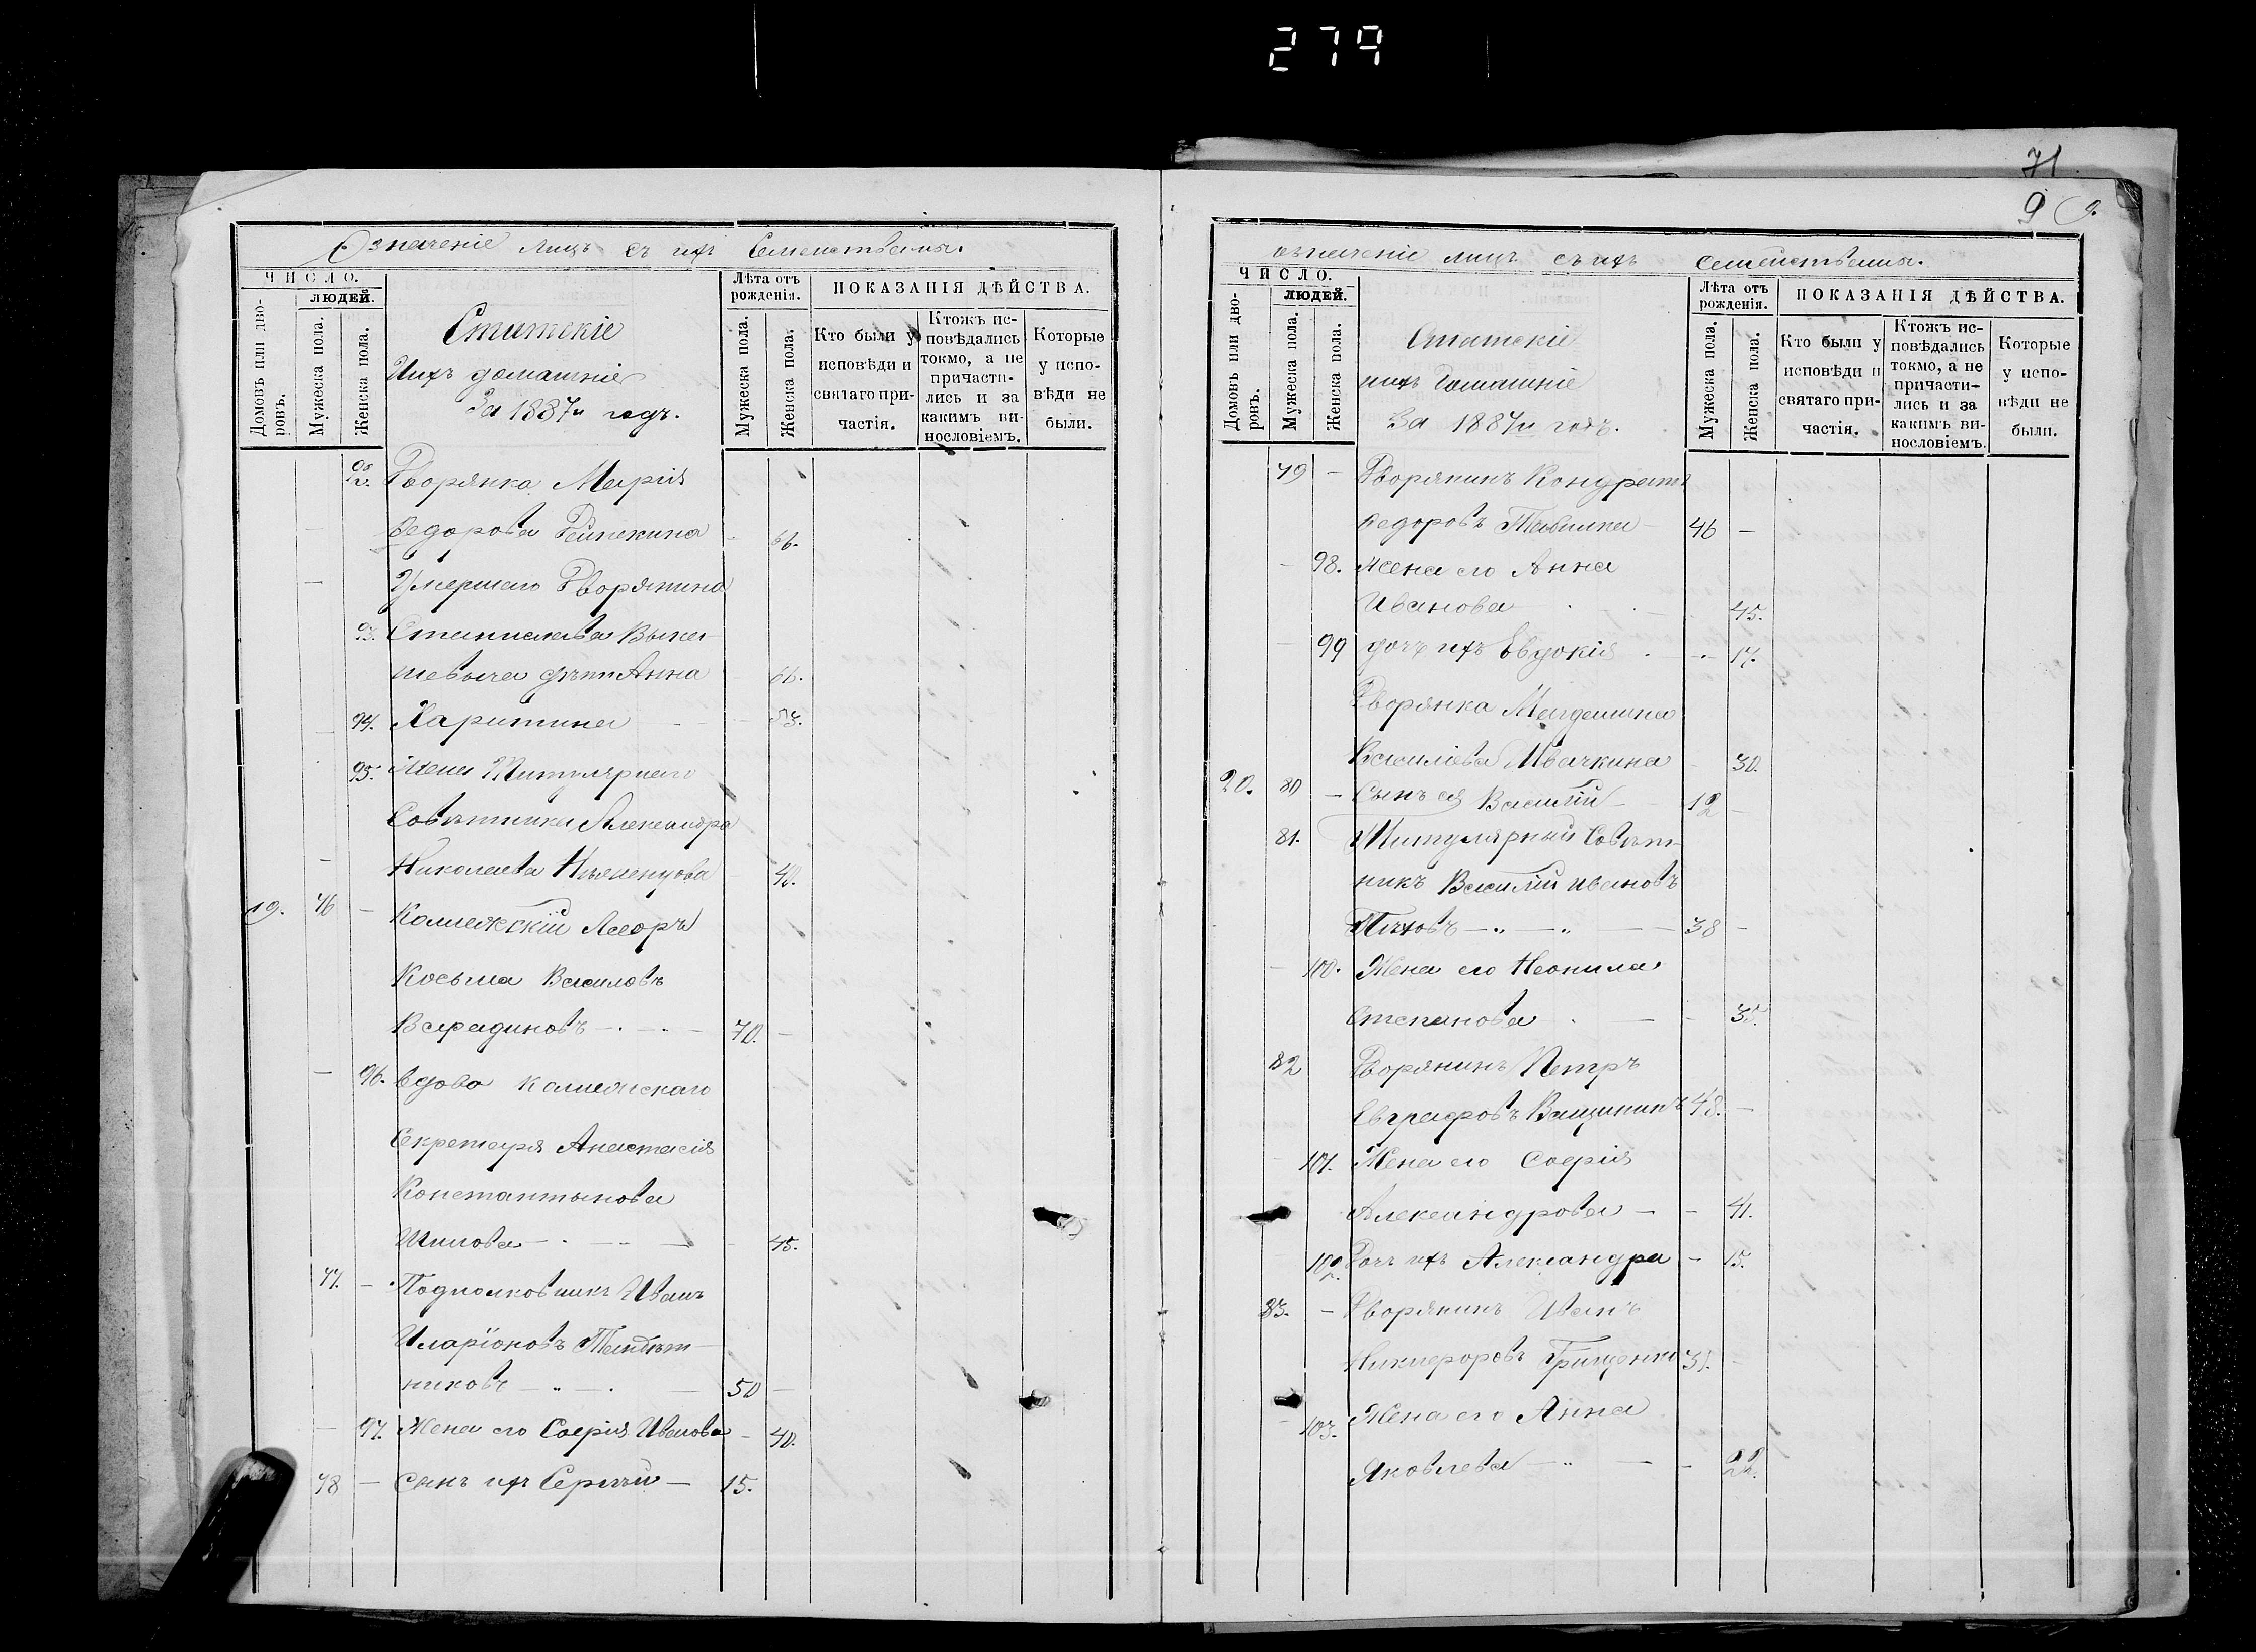 279
71
9
Означеніе лицъ съ ихъ Семействами.
ЧИСЛО.
Домовъ или дворовъ.
ЛЮДЕЙ.
Мужеска пола.
Женска пола.
Статскіе
Ихъ домашніе
За 1887й годъ.
Лѣта отъ
рожденія.
Мужеска пола.
Женска пола.
ПОКАЗАНІЯ ДѢЙСТВА.
Кто были у
исповѣди и
святаго при-
частія.
Ктожъ ис-
повѣдались
токмо, а не
причасти-
лись и за
какимъ ви-
нословіемъ.
Которые
у испо-
вѣди не
были.
92. Дворянка Марія
Федорова 66.
Умершаго Дворянина
93. Станислава Выка-
шевыча дѣти Анна 66.
94. Харитина 53.
95. Жена Титулярнаго
Совѣтника Александра
Николаева 42.
19. 76 Коллежскій Асеоръ
Косьма Василовъ
Варадиновъ 70.
96. вдова Коллежскаго
Секретаря Анастасія
Константынова
Шилова 45.
77. Подполковникъ Иванъ
Иларіоновъ
никовъ 50
97. Жена его Софія Иванова 40.
78 сынъ ихъ Сергѣй 15.
означеніе лицъ съ ихъ семействами.
ЧИСЛО.
Домовъ или дворовъ.
ЛЮДЕЙ.
Мужеска пола.
Женска пола.
Статскіе
ихъ Домашніе
За 1887й годъ.
Лѣта отъ
рожденія.
Мужеска пола.
Женска пола.
ПОКАЗАНІЯ ДѢЙСТВА.
Кто были у
исповѣди и
святаго при-
частія.
Ктожъ ис-
повѣдались
токмо, а не
причасти-
лись и за
какимъ ви-
нословіемъ.
Которые
у испо-
вѣди не
были.
79 Дворянинъ Кондратъ
Федоровъ 46
98. Жена его Анна
Иванова 45.
99 дочь ихъ Евдокія 17.
Дворянка Магдалина
Василіева Ивачкина 30.
20. 80 Сынъ ея Василій 12
81. Титулярный Совѣт-
никъ Василій Ивановъ
Пѣховъ 38
100. Жена его Неонила
Степанова 35.
82 Дворянинъ Петръ
Евграфовъ Ващининъ 48.
101. Жена его Софія
Александрова 41.
102. Дочь ихъ Александра 15.
83. Дворянинъ Иванъ
Никифоровъ Грищенко 31.
103. Жена его Анна
Яковлева 22.